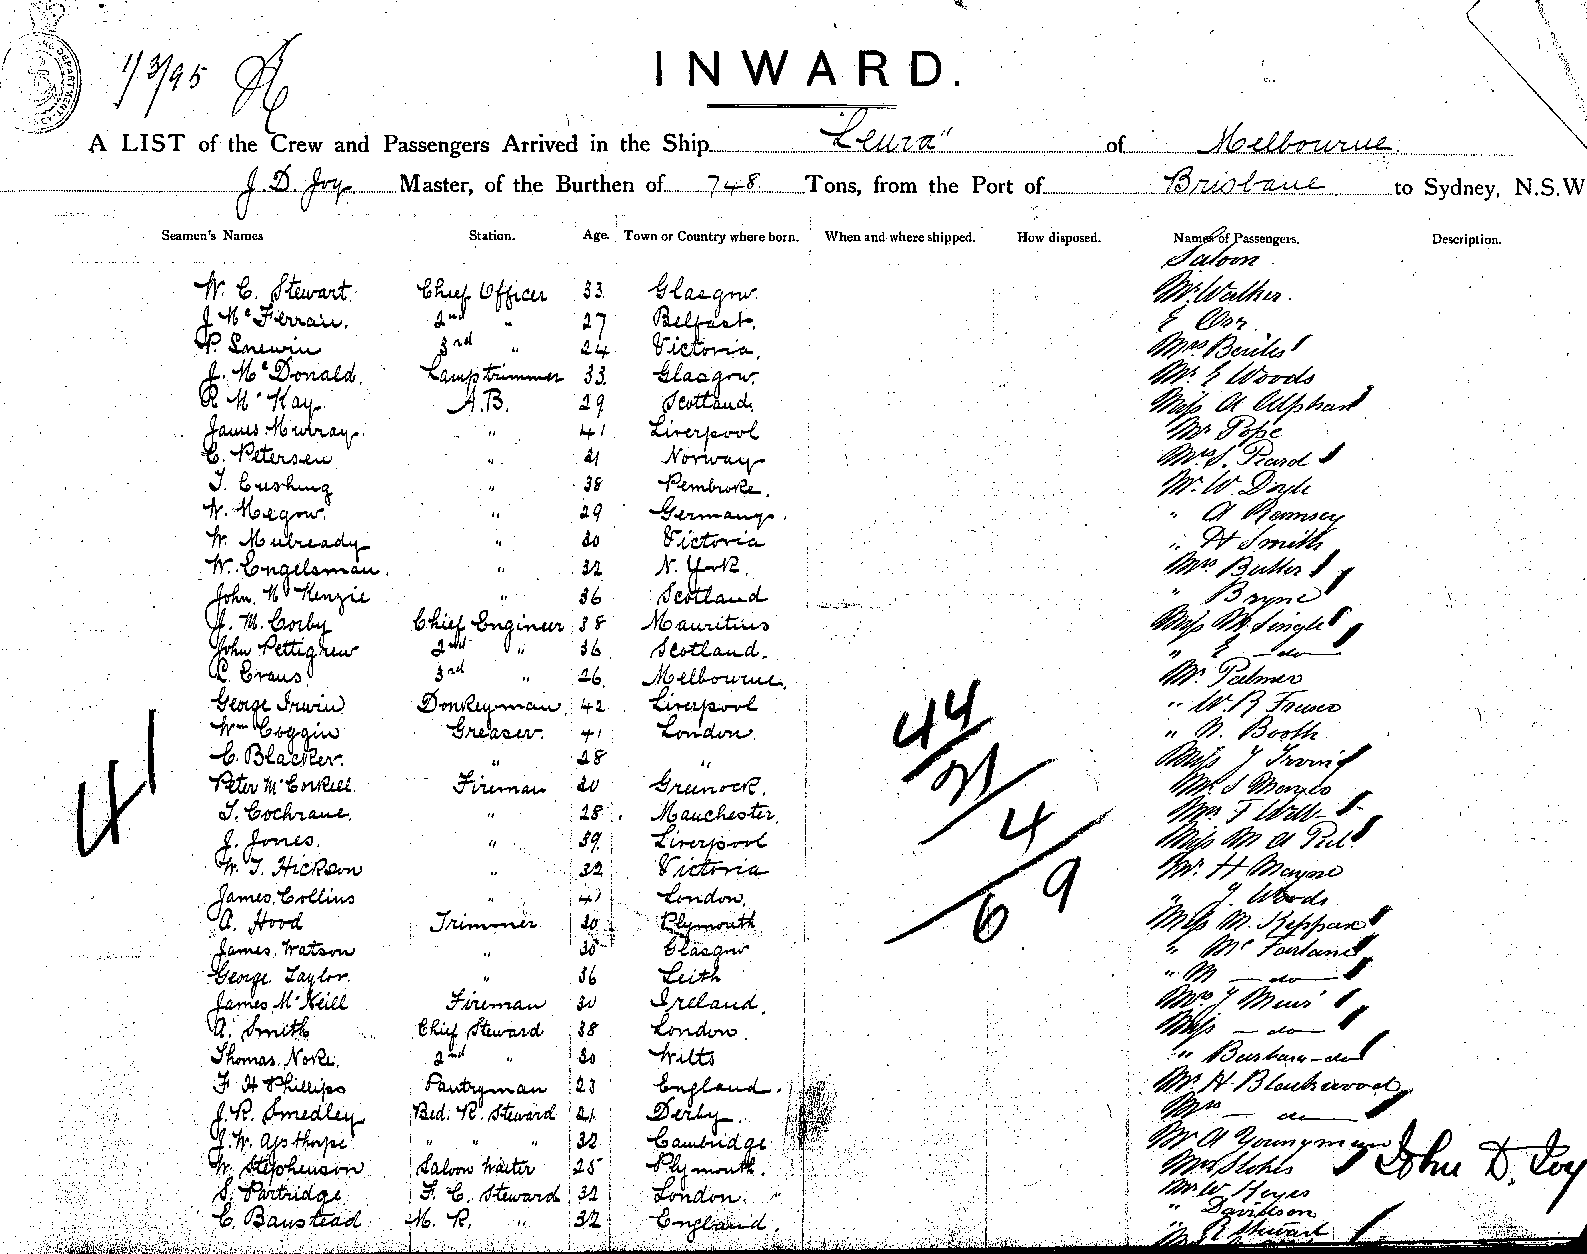 1/3/95
INWARD.
A LIST of the Crew and Passengers Arrived in the Ship "Leura" of Melbourne
J. D. Joy Master, of the Burthen of 748 Tons, from the Port of Brisbane to Sydney, N.S.W
Seamen's Names Station. Age. Town or Country where born. When and where shipped. How disposed. Names of Passengers. Description.
Saloon
W. C. Stewart Chief Officer 33 Glasgow. Mr Walker.
J McFerran. 2nd " 27 Belfast.
P. Snewin 3rd " 24 Victoria. Mrs
J. McDonald. Lamptrimmer 33 Glasgow. Mr E Woods
R McKay A.B. 29 Scotland. Miss A
James Murray " 41 Liverpool Mr Pope
C. Petersen " 21 Norway Mrs S. Peard
T. Cushing " 38 Pembroke. Mr W. Doyle
W. Megow. " 29 Germany. " A Ramsey
W. Mulready " 30 Victoria " H Smith
W. Engelsman. " 32 N. York. Mrs Butler
John McKenzie " 36 Scotland " Bryne
J. M. Corby Chief Engineer 38 Mauritius Miss M Single
John Pettigrew 2nd " 36 Scotland. " E do
C. Evans 3rd " 26 Melbourne. Mr Palmer
George Irwin Donkeyman 42 Liverpool " W. R
Wm Coggin Greaser. 41 London " N. Booth
C. Blacker. " 28 " Miss J Irving
Peter McCorkell Fireman 30 Greenock. Mr S
T. Cochrane. " 28 Manchester. Mrs F
J. Jones. " 39 Liverpool Miss M A
W. T. Hickson " 32 Victoria Mr H Mayne
James Collins " 41 London. " J. Woods
A. Hood Trimmer 30 Plymouth Miss M.
James Watson " 30 Glasgow " McFarlane
George Taylor. " 36 Leith " M do
James McNeill Fireman 30 Ireland. Mrs J Muir
A. Smith Chief Steward 38 London. Miss do
Thomas Noke. 2nd " 30 Wilts " Barbara do
F H Phillips Pantryman 23 England. Mr H Blackwood
J. R. Smedley Bed. R. Steward 21 Derby. Mrs do
J. W. Apsthorpe " " " 32 Cambridge Mr A Youngman
W. Stephenson Saloon Waiter 25 Plymouth. Mrs Stokes John D. Joy
S. Partridge F. C. Steward 32 London. Mr W. Heyes
" Davidson
C. Banstead M. R. " 32 England. " R Stewart
41
44
21
4
69